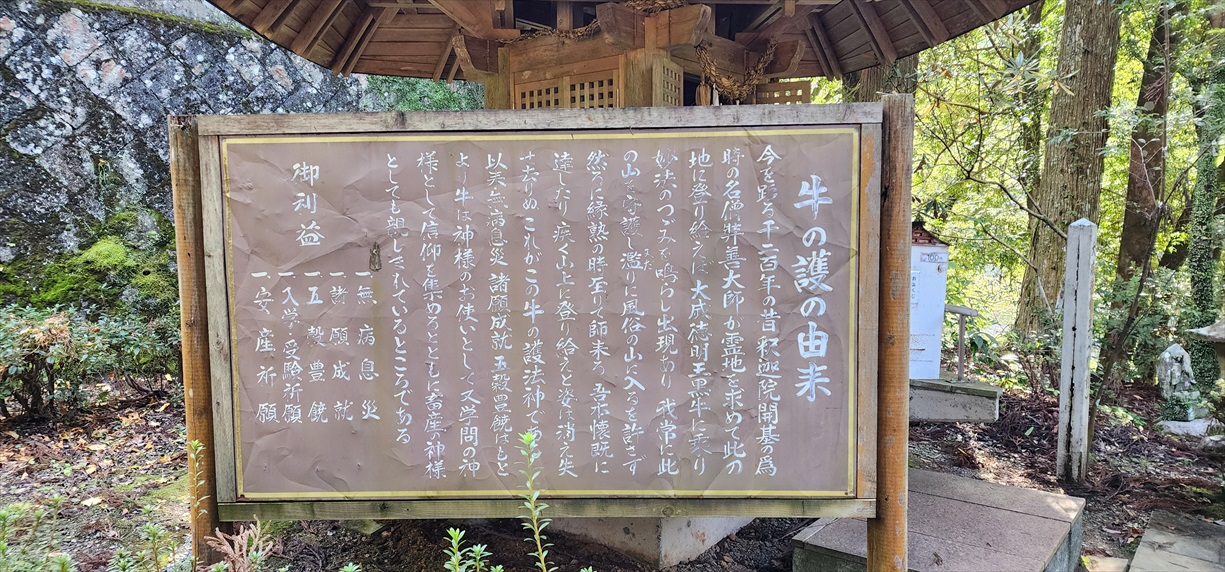 牛の護の由来
今を距る千二百年の昔釈迦院開基の為
時の名僧奘善大師が霊地を求めて此の
地に登り給えば大威徳明王黒牛に乗り
妙法のつづみを鳴らし出現あり我常に此
の山を守護し濫に風俗の山に入るを許さず
みだ
然るに縁熟の時至りて師来る吾本懐既に
達したり疾く山上に登り給えと姿は消え失
去りぬこれがこの牛の護法神である
以来無病息災諸願成就五穀豊饒はもと
より牛は神様のお使いとして又学問の神
様として信仰を集めるとともに畜産の神様
としても親しまれているところである
御利益
一無病息災
一諸願成就
一五穀豊饒
一入学受験祈願
一安産祈願